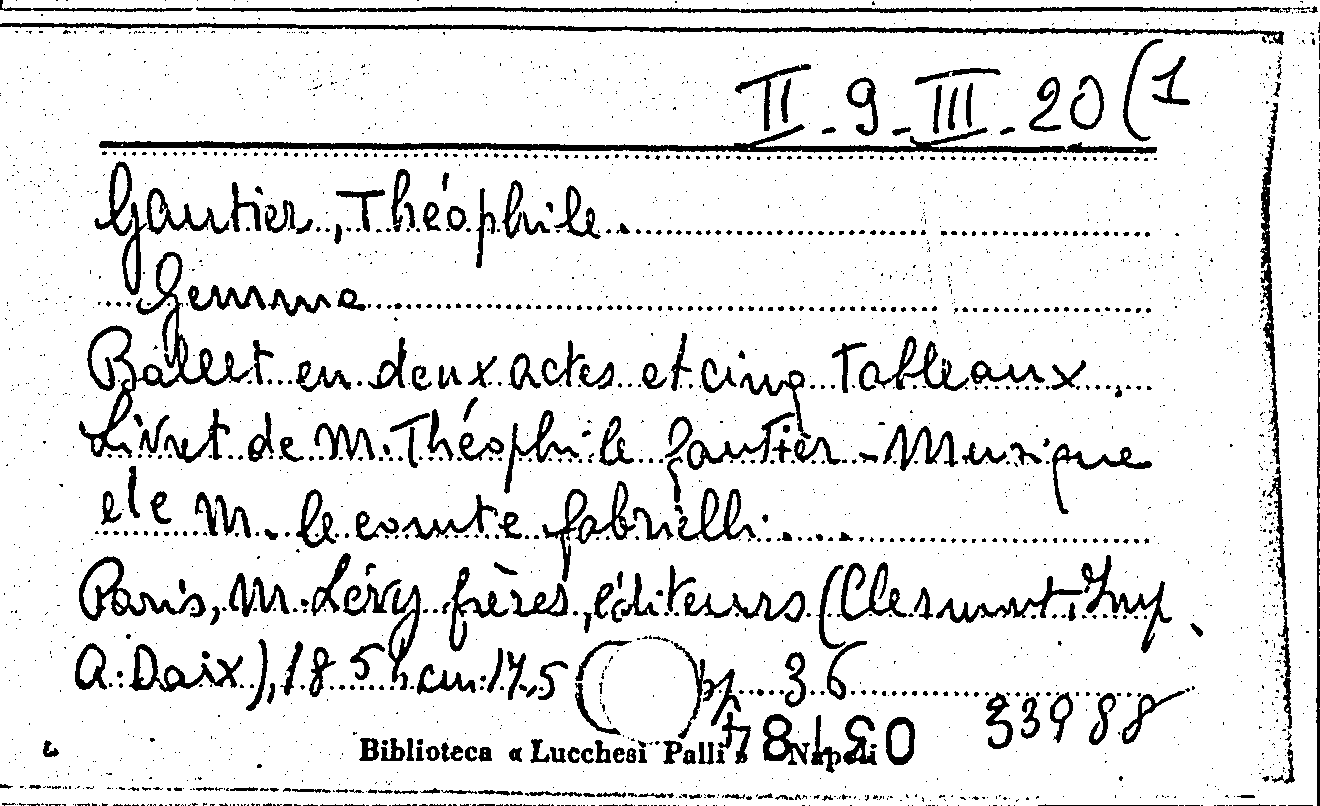 II-9-III-20(1
Gautier, Théophile.
Gemma
Ballet en deux actes et cinq tableaux.
Livret de M. Théophile Gautier - Musique
de M. le comte Gabrielli...
Paris, M. Lévy frères, éditeurs (Clermont, Imp.
A. Daix), 185 cm. 17,5 pp. 36
33988
Biblioteca « Lucchesi Palli » Napoli